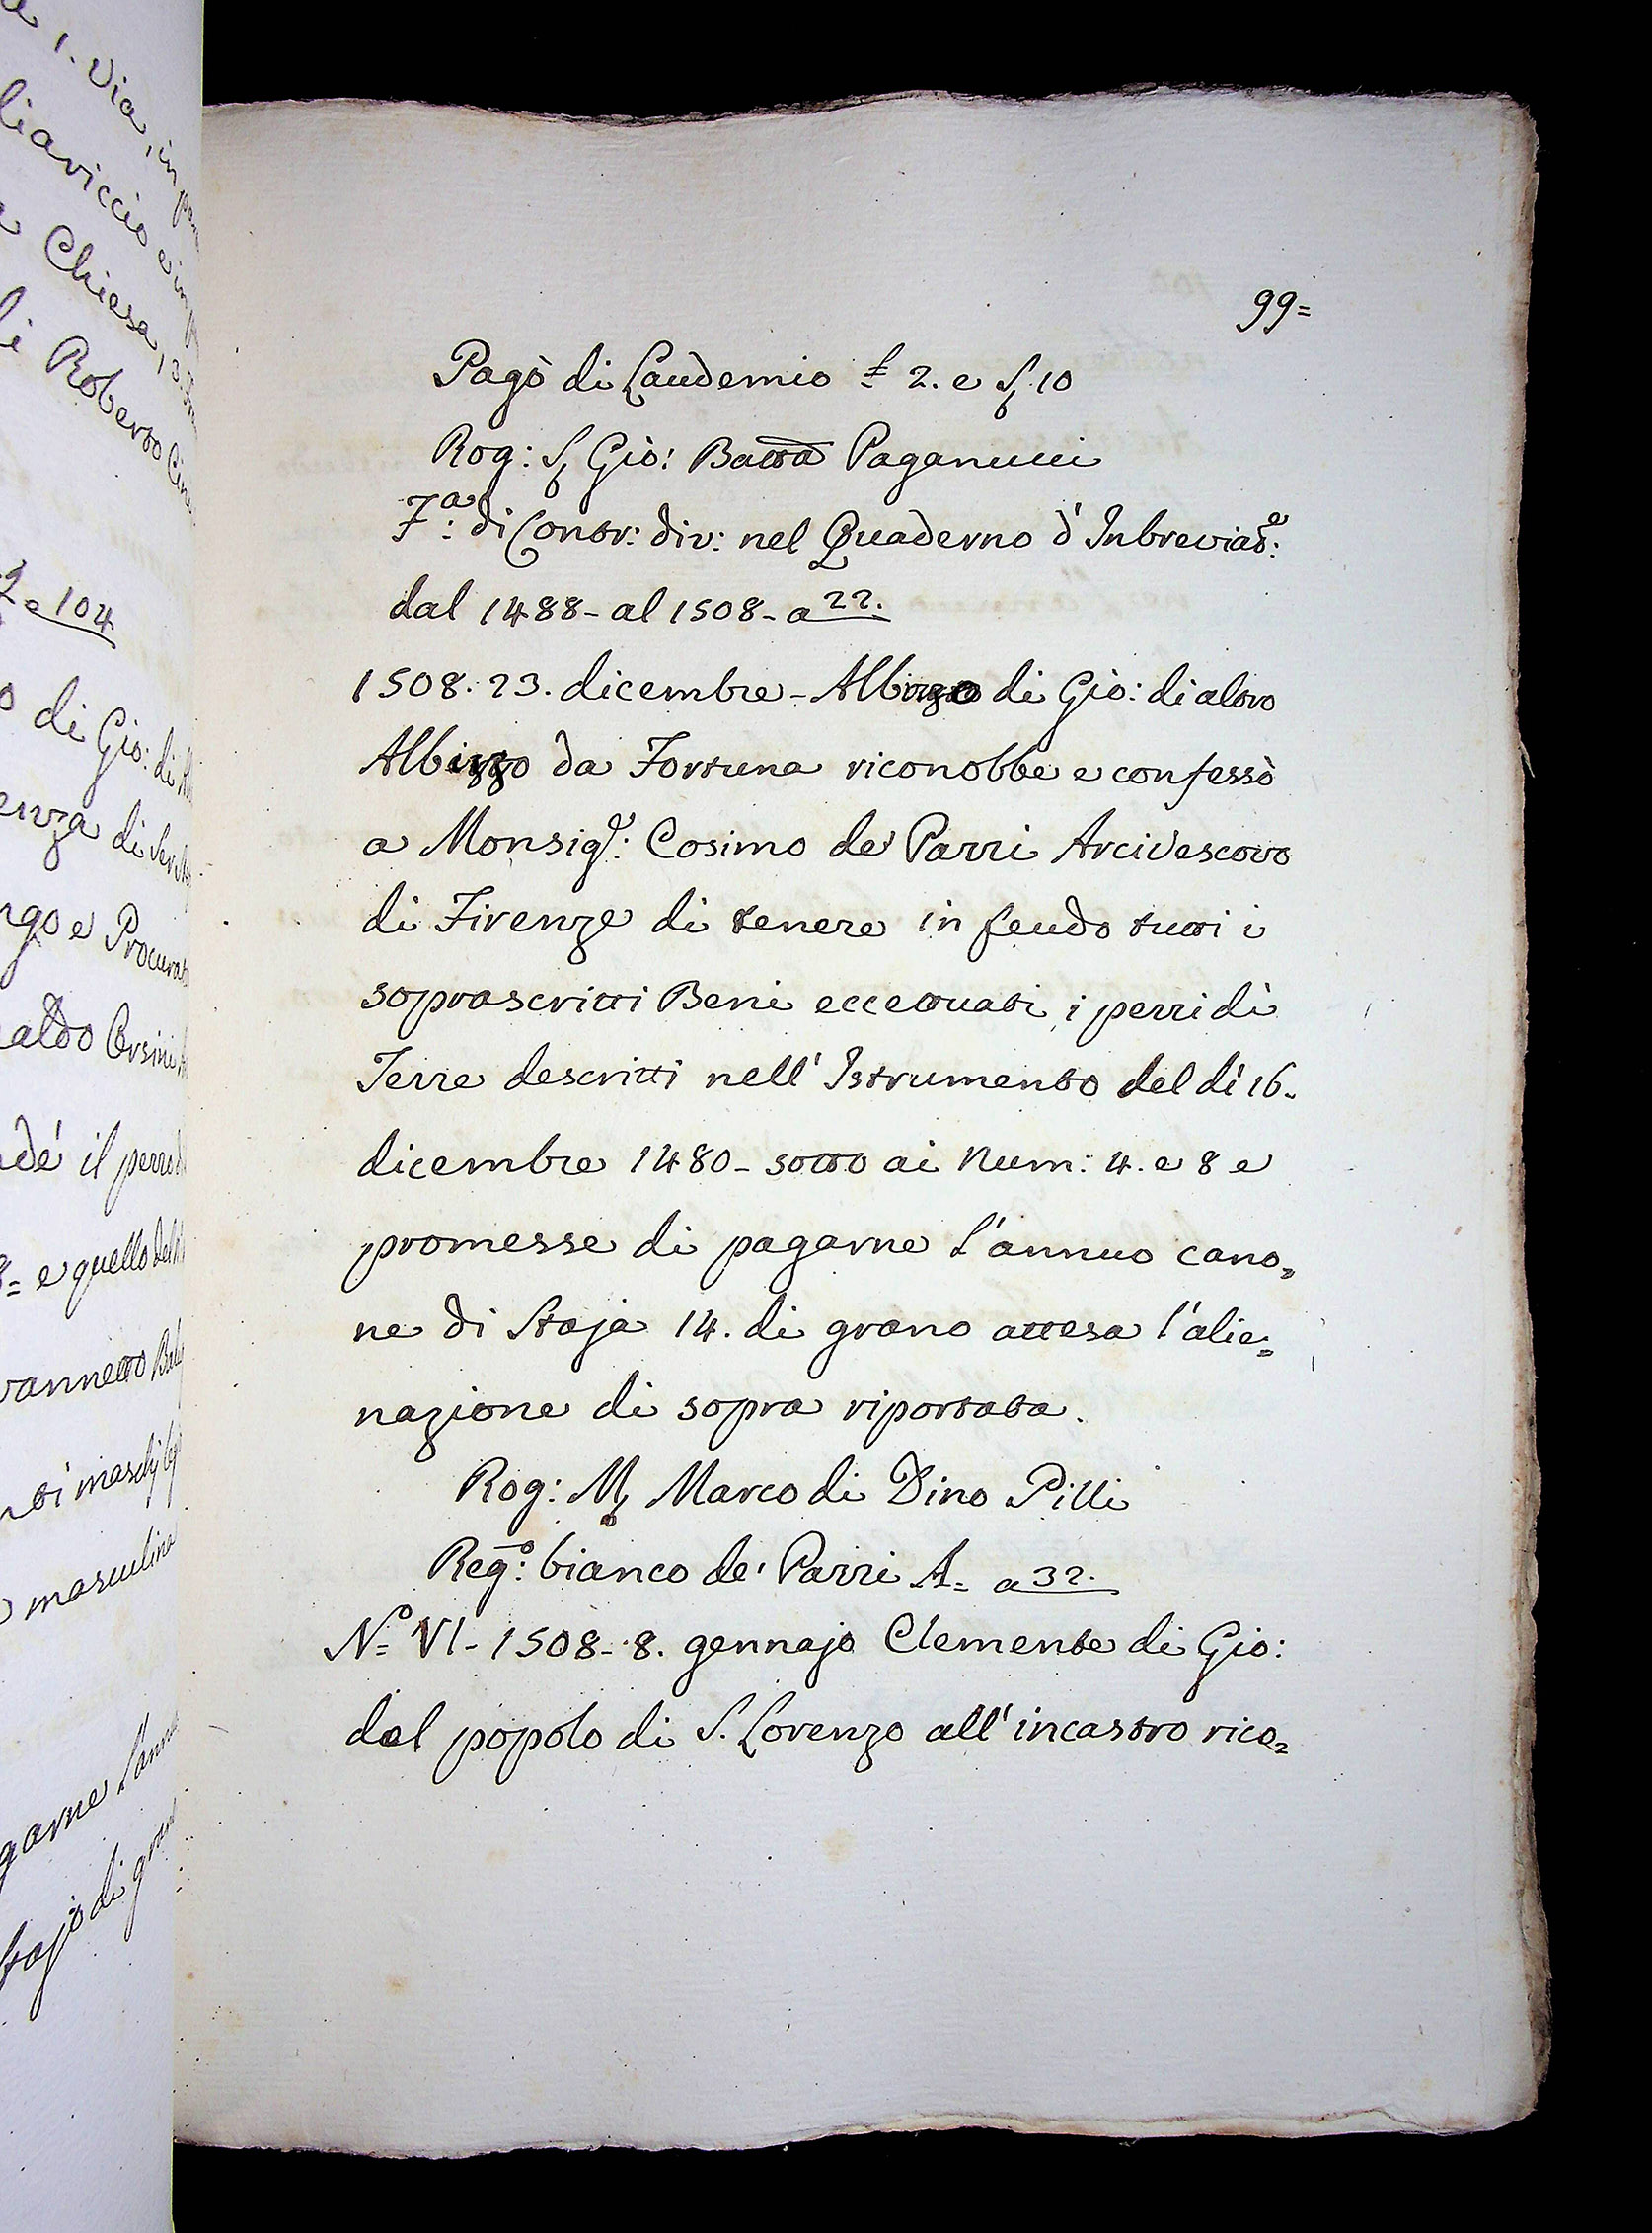 a 1. Via, in
liaviccio e in
Chiesa,
li Roberto
e 104
o di Gio: di
enza di
ngo e Procurat
aldo Orsini
dé il pezzo
8= e quello del
vannetto
nti maschj
masculina
garne l'annuo
Stajo di gran
99=
Pagò di Laudemio £ 2. e S. 10
Rog: S. Gio: Batta Paganucci
Fa: di Contr: div: nel Quaderno d'Inbreviate:
dal 1488- al 1508- a 22.
1508. 23. dicembre- Albizzo di Gio: di altro
Albizzo da Fortuna riconobbe e confessò
a Monsige: Cosimo de' Pazzi Arcivescovo
di Firenze di tenere in feudo tutti i
soprascritti Beni eccettuati i pezzi di
Terre descritti nell' Istrumento del dì 16.
dicembre 1480- sotto ai Num: 4. e 8 e
promesse di pagarne l'annuo cano=
ne di Staja 14. di grano attesa l'alie=
nazione di sopra riportata.
Rog: M. Marco di Dino Pilli
Rego: bianco de' Pazzi A= a 32.
No= VI- 1508- 8. gennajo Clemente di Gio:
del popolo di S. Lorenzo all'incastro rico=